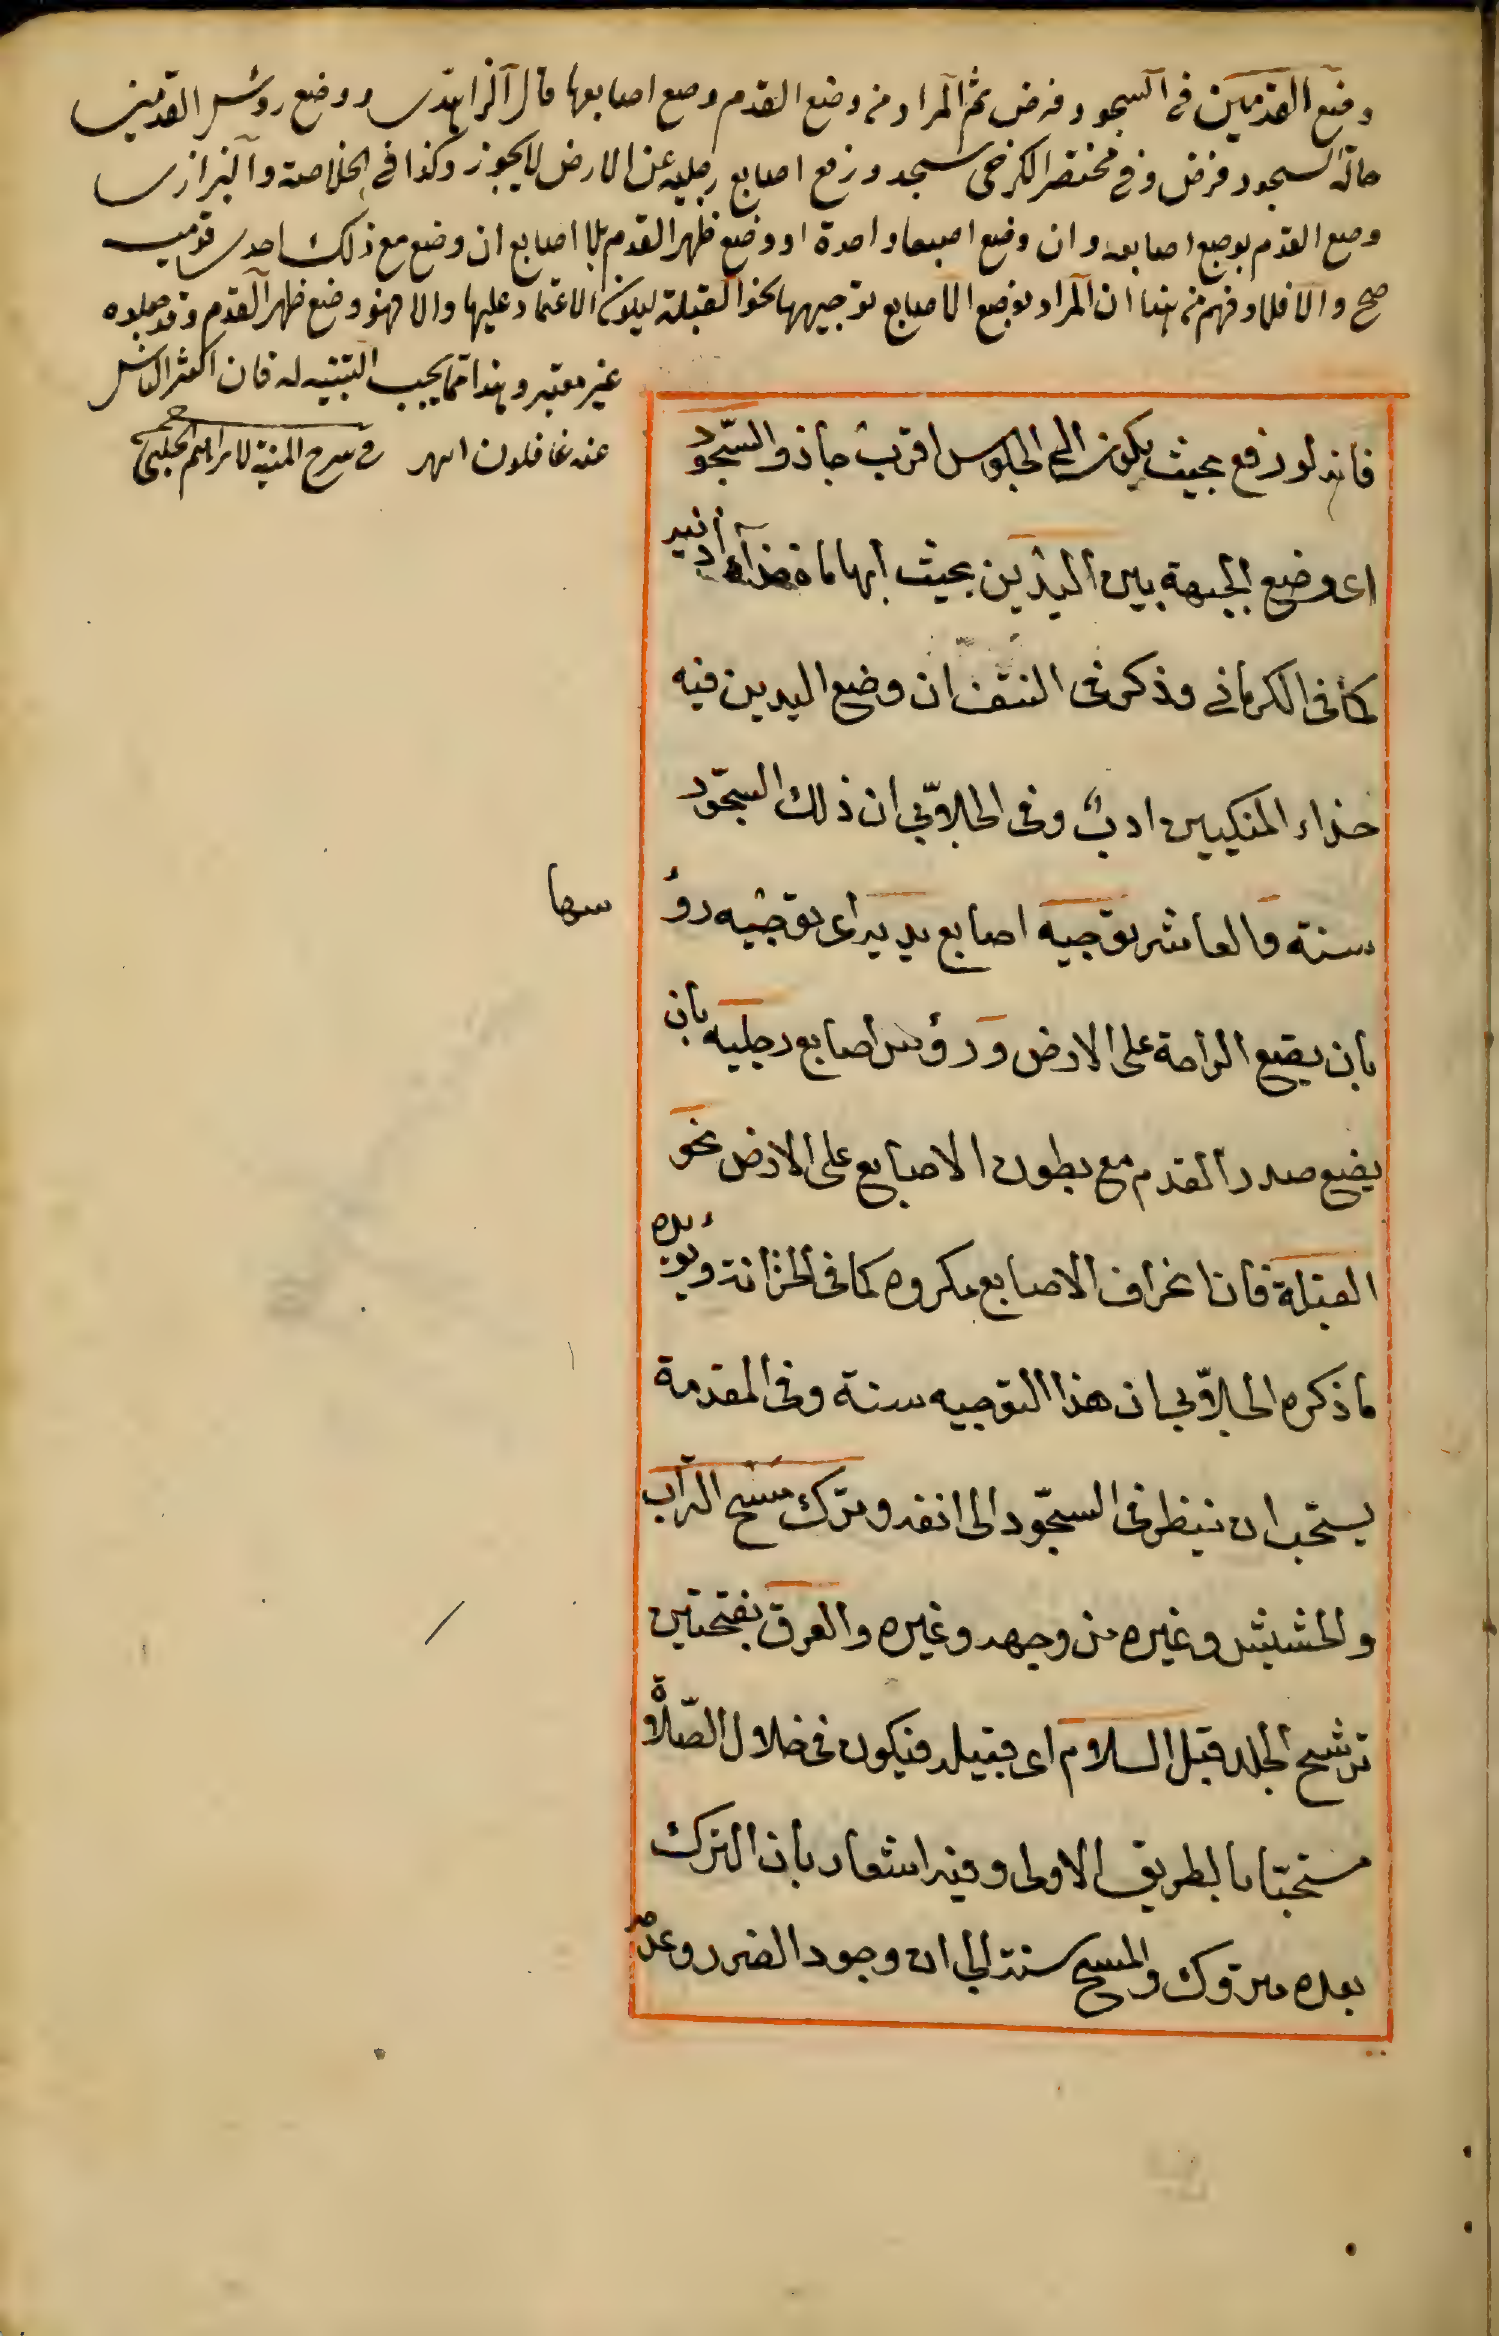 وضع القدمين في السجود فرض ثم المراد من وضع القدم وضع اصابعها قال الزاهدى ووضع رؤس القدمين
حالة السجود فرض وفي مختصر الكرخى سجد ورفع اصابع رجليه عن الارض لا يجوز وكذا في الخلاصة والبزازى
وضع القدم بوضع اصابعه وان وضع اصبعا واحدة او وضع ظهر القدم بلا اصابع ان وضع مع ذلك احدى قدميه
صح والا فلا وفهم من هذا ان المراد بوضع الاصابع توجيهها نحو القبلة ليكون الاعتماد عليها والا فهو وضع ظهر القدم وقد جعلوه
غير معتبر وهذا مما يجب التنبيه له فان اكثر الناس
عنه غافلون انتهى في شرح المنية لابراهيم الحلبي
فانه لو رفع بحيث يكون الى الجلوس اقرب جاز والسجود
اى وضع الجبهة بين اليدين بحيث ابهاماه حذاء اذنيه
كما في الكرماني وذكر في النتف ان وضع اليدين فيه
حذاء المنكبين ادب وفي الجلابي ان ذلك السجود
سنة والعاشر توجيه اصابع يديه اى توجيه رؤ
سها
بان يضع الراحة على الارض ورؤس اصابع رجليه بان
يضع صدر القدم مع بطون الاصابع على الارض نحو
القبلة فان انحراف الاصابع مكروه كما في الخزانة ويؤيده
ما ذكره الجلابي ان هذا التوجيه سنة وفي المقدمة
يستحب ان ينظر في السجود الى انفه وترك مسح التراب
والحشيش وغيره من وجهه وغيره والعرق بفتحتين
ترشح الجلد قبل السلام اى قبيله فيكون في خلال الصلاة
مستحبا بالطريق الاولى وفيه اشعار بان الترك
بعده متروك والمسح سنة الى ان وجود الضرر وعدم